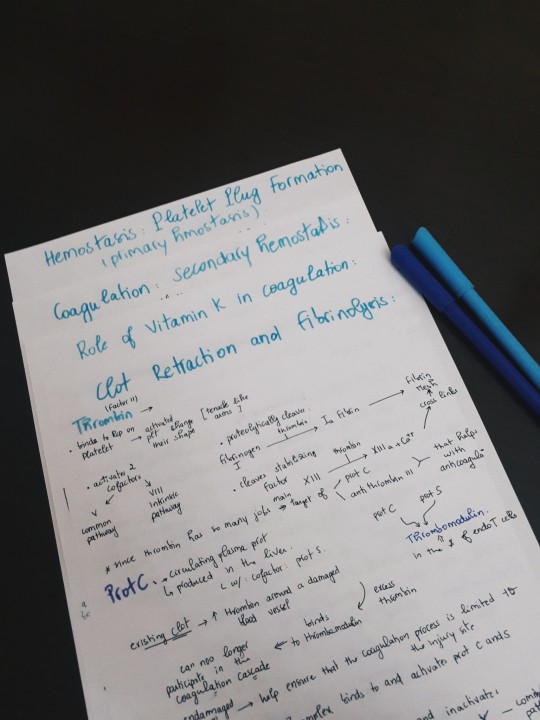 Hemostasis: Platelet Plug Formation
(primary hmostasis)
Coagulation: secondary hemostasis:
Role of Vitamin K in coagulation:
Clot Retraction and Fibrinolysis:
Thrombin (Factor II) →
• binds to Rep on platelet → activated plt change their shape [tencile like arms]
• activates 2 cofactors
V common pathway
VIII intrinsic pathway
• proteolytically cleaves
Fibrinogen I thrombin → Ia Fibrin → Fibrin Mesh
cross links
• cleaves stabilising Factor XIII thrombin → XIIIa + Ca++
* since thrombin has so many jobs → main target of prot C
anti thrombin III
that helps with
prot C prot S
Thrombomodulin
in the of endoT cells
Prot C. → circulating plasma prot
↳ produced in the liver
(w/ cofactor prot S
existing clot → ↑ thrombin around a damaged blood vessel
excess thrombin
binds to thrombomodulin
can noo longer participate in the coagulation cascade
→ help ensure that the coagulation process is limited to the injury site
binds to and activates prot C and S
inactivates